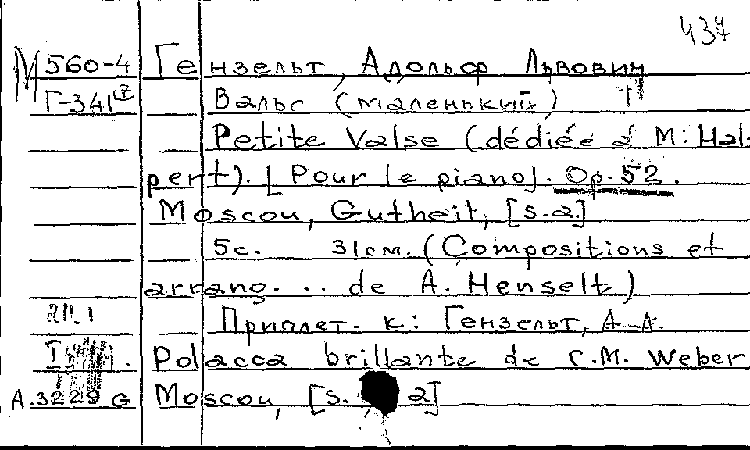 437
М 560-4 Гензельт, Адольф Львович
Г-341 Вальс (маленький)
Petite Valse (dédiée à M: Hal-
pert). [Pour le piano]. Op.52.
Moscou, Gutheit, [s.a.]
5с. 31см. (Compositions et
arrang... de A. Henselt)
Приплет. к: Гензельт, А.Л.
Polacca brillante de C.M. Weber
А.3229 G Moscou, [s. a]